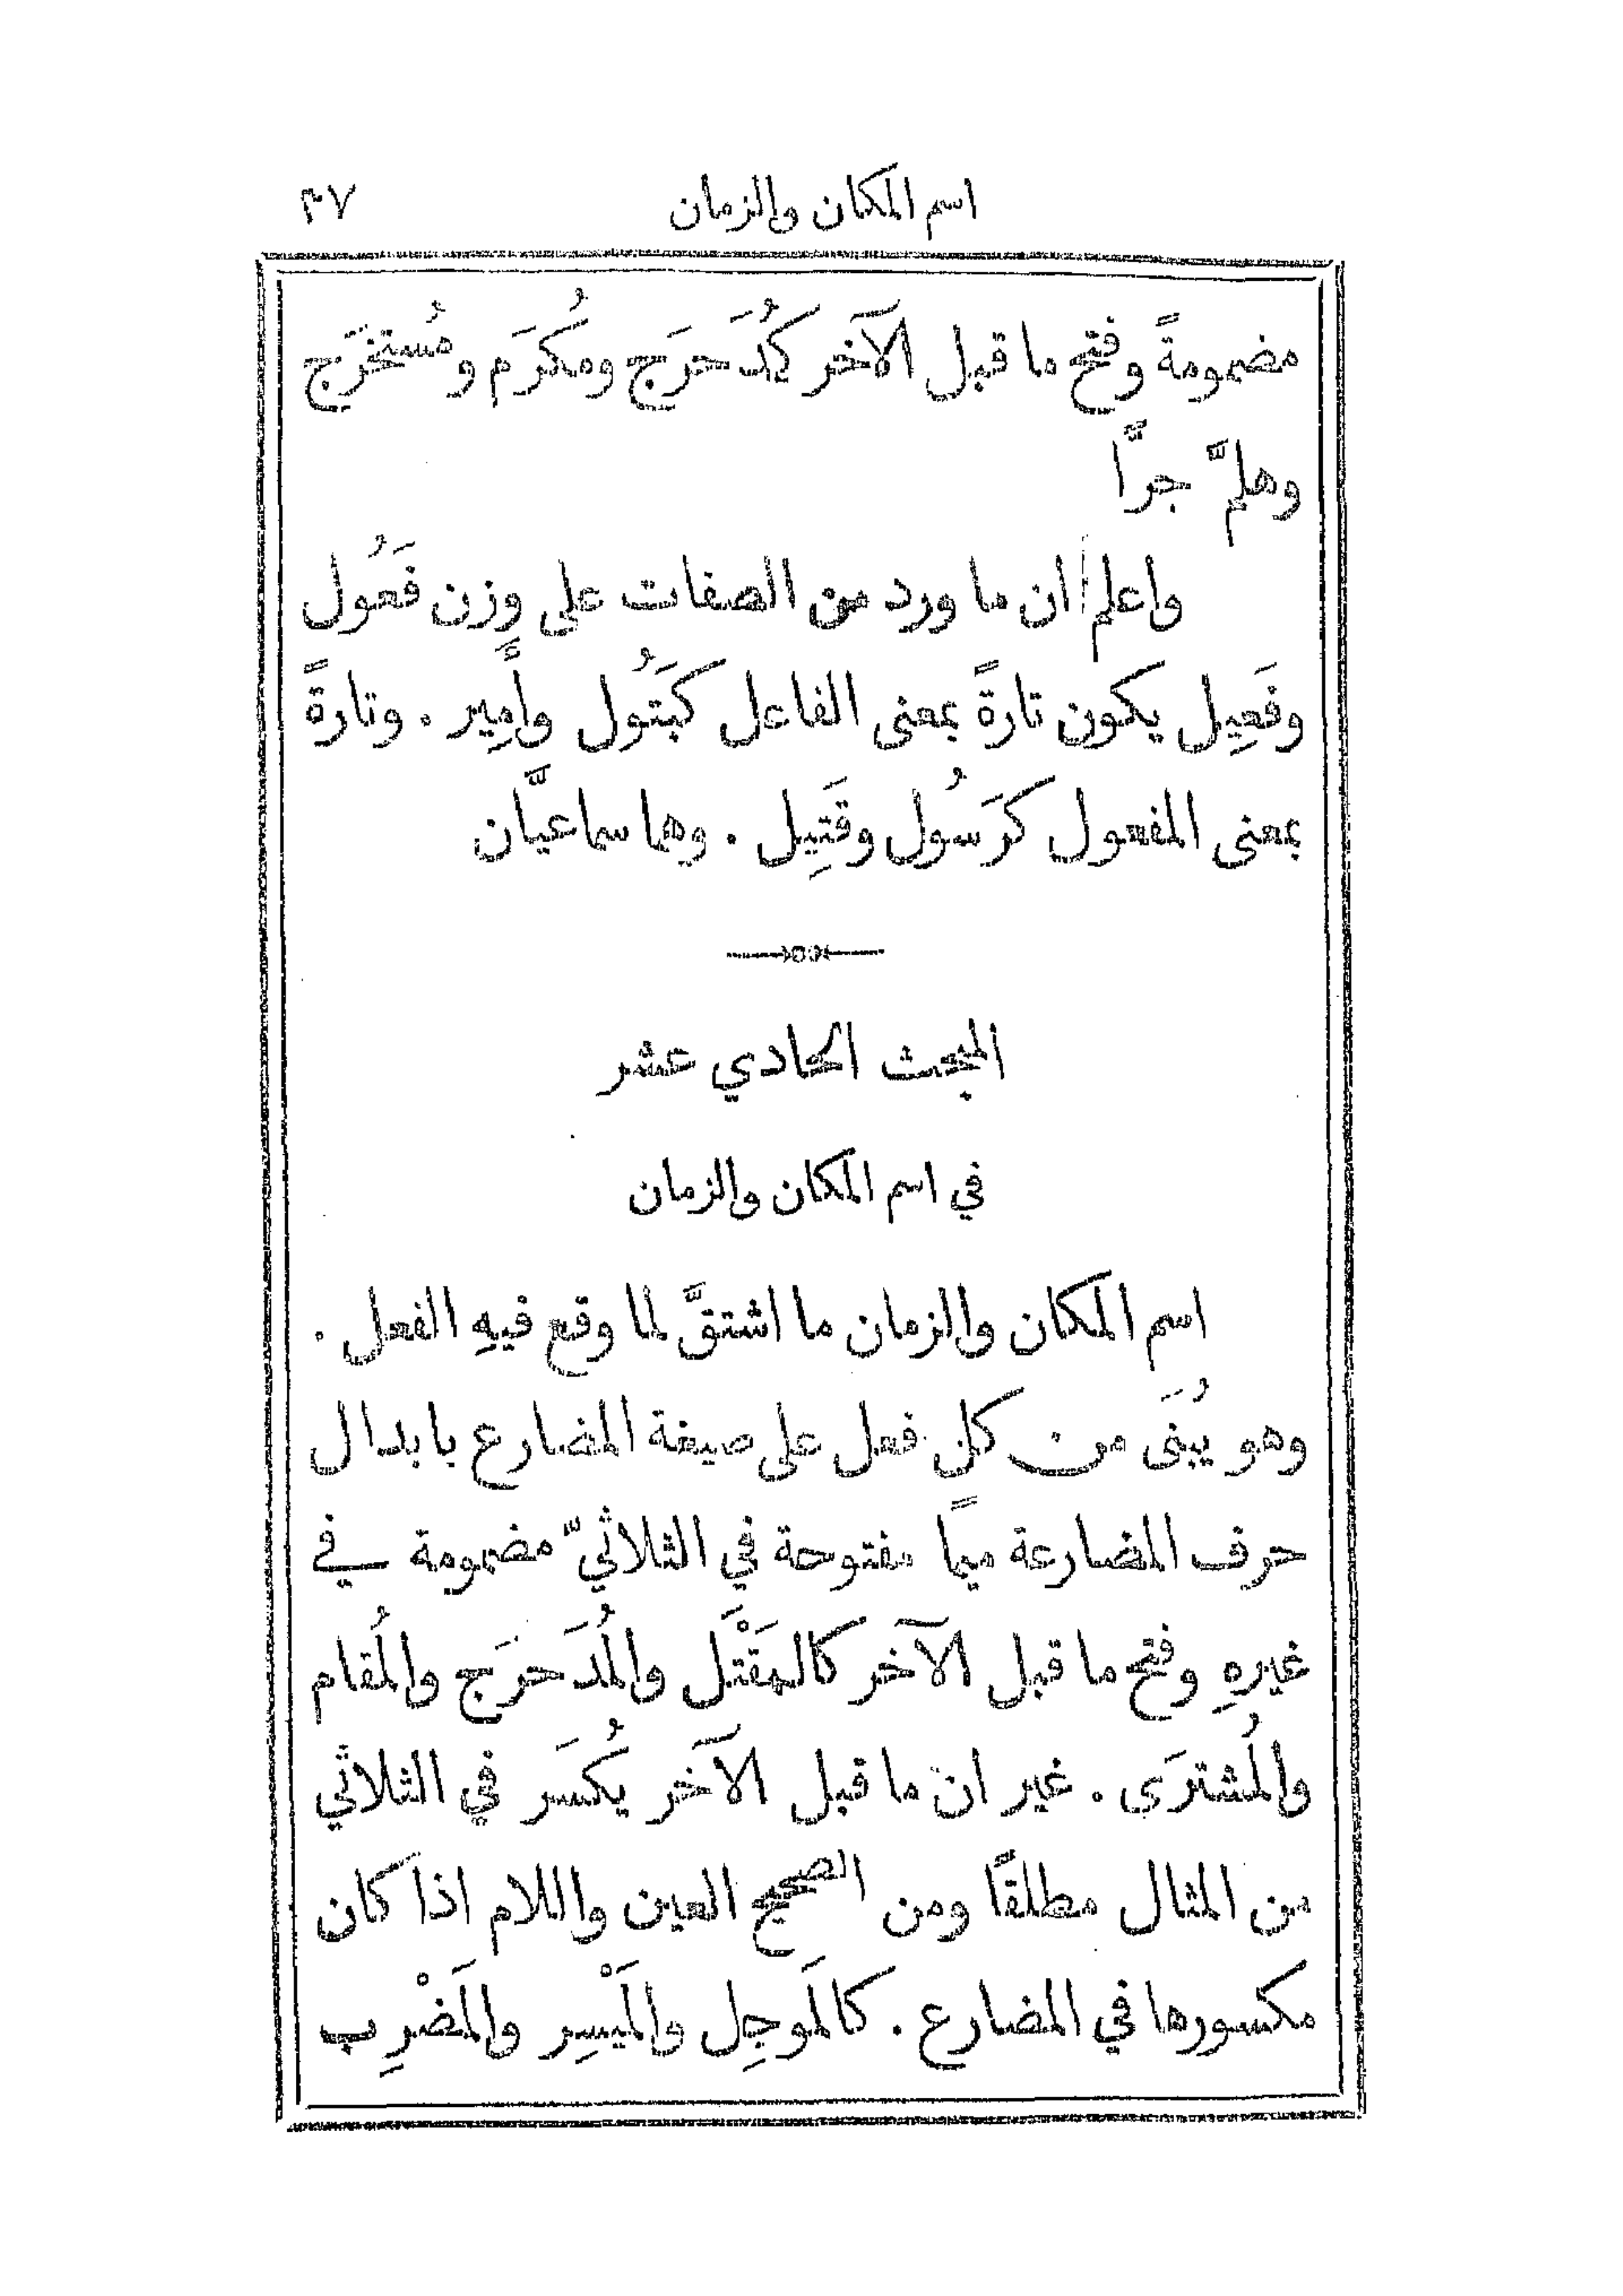 اسم المكان والزمان ٣٧
مضمومةً وفتح ما قبل الآخر كمُدَحرَج ومُكرَم ومُستخرَج
وهلمَّ جرًّا
واعلم ان ما ورد من الصفات على وزن فَعُول
وفَعِيل يكون تارةً بمعنى الفاعل كبَتُول وأَمِير . وتارةً
بمعنى المفعول كرَسُول وقَتِيل . وهما سماعيَّان
المبحث الحادي عشر
في اسم المكان والزمان
اسم المكان والزمان ما اشتقَّ لما وقع فيهِ الفعل .
وهو يُبنَى من كل فعل على صيغة المضارع بابدال
حرف المضارعة ميمًا مفتوحة في الثلاثيّ مضمومة في
غيرهِ وفتح ما قبل الآخر كالمَقْتَل والمُدَحرَج والمُقام
والمُشترَى . غير ان ما قبل الآخر يُكسَر في الثلاثي
من المثال مطلقًا ومن الصحيح العين واللام اذا كان
مكسورها في المضارع . كالمَوجِل والمَيْسِر والمَضْرِب